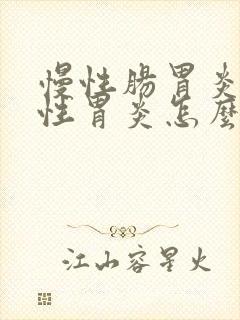 慢性腸胃炎
性胃炎怎麼
江山容星火